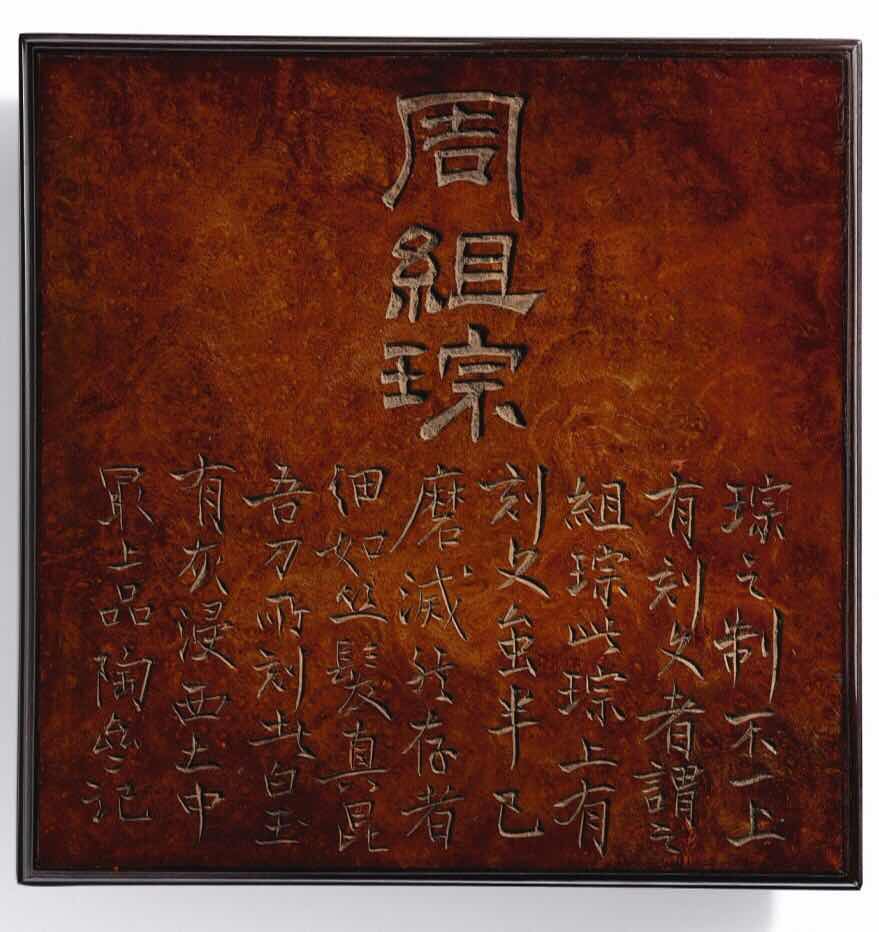 周組琮
琮之制不一上
有刻文者謂之
組琮此琮上有
刻文虽半已
磨滅然存者
細如丝髮真昆
吾刀所刻此白玉
有灰浸西土中
最上品陶斋记